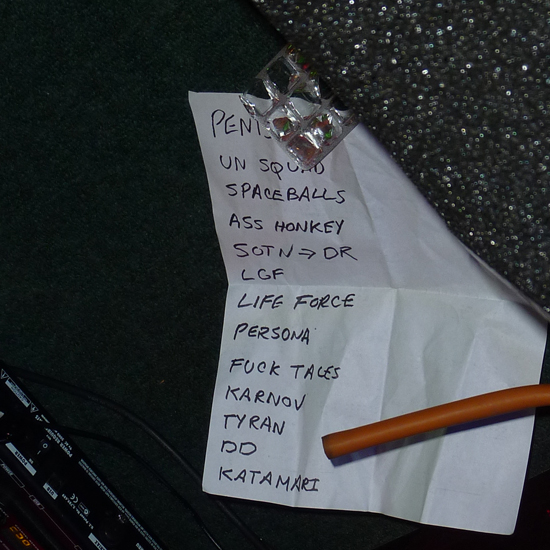 PENIS
UN SQUAD
SPACEBALLS
ASS HONKEY
SOTN ⇒ DR
LGF
LIFE FORCE
PERSONA
FUCK TALES
KARNOV
TYRAN
DD
KATAMARI